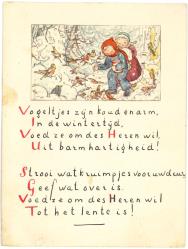 Vogeltjes zijn koud en arm,
In de wintertijd,
Voedze om des Heren wil,
Uit barmhartigheid!
Strooi wat kruimpjes voor uw deur,
Geef wat over is.
Voedze om des Heren wil
Tot het lente is!